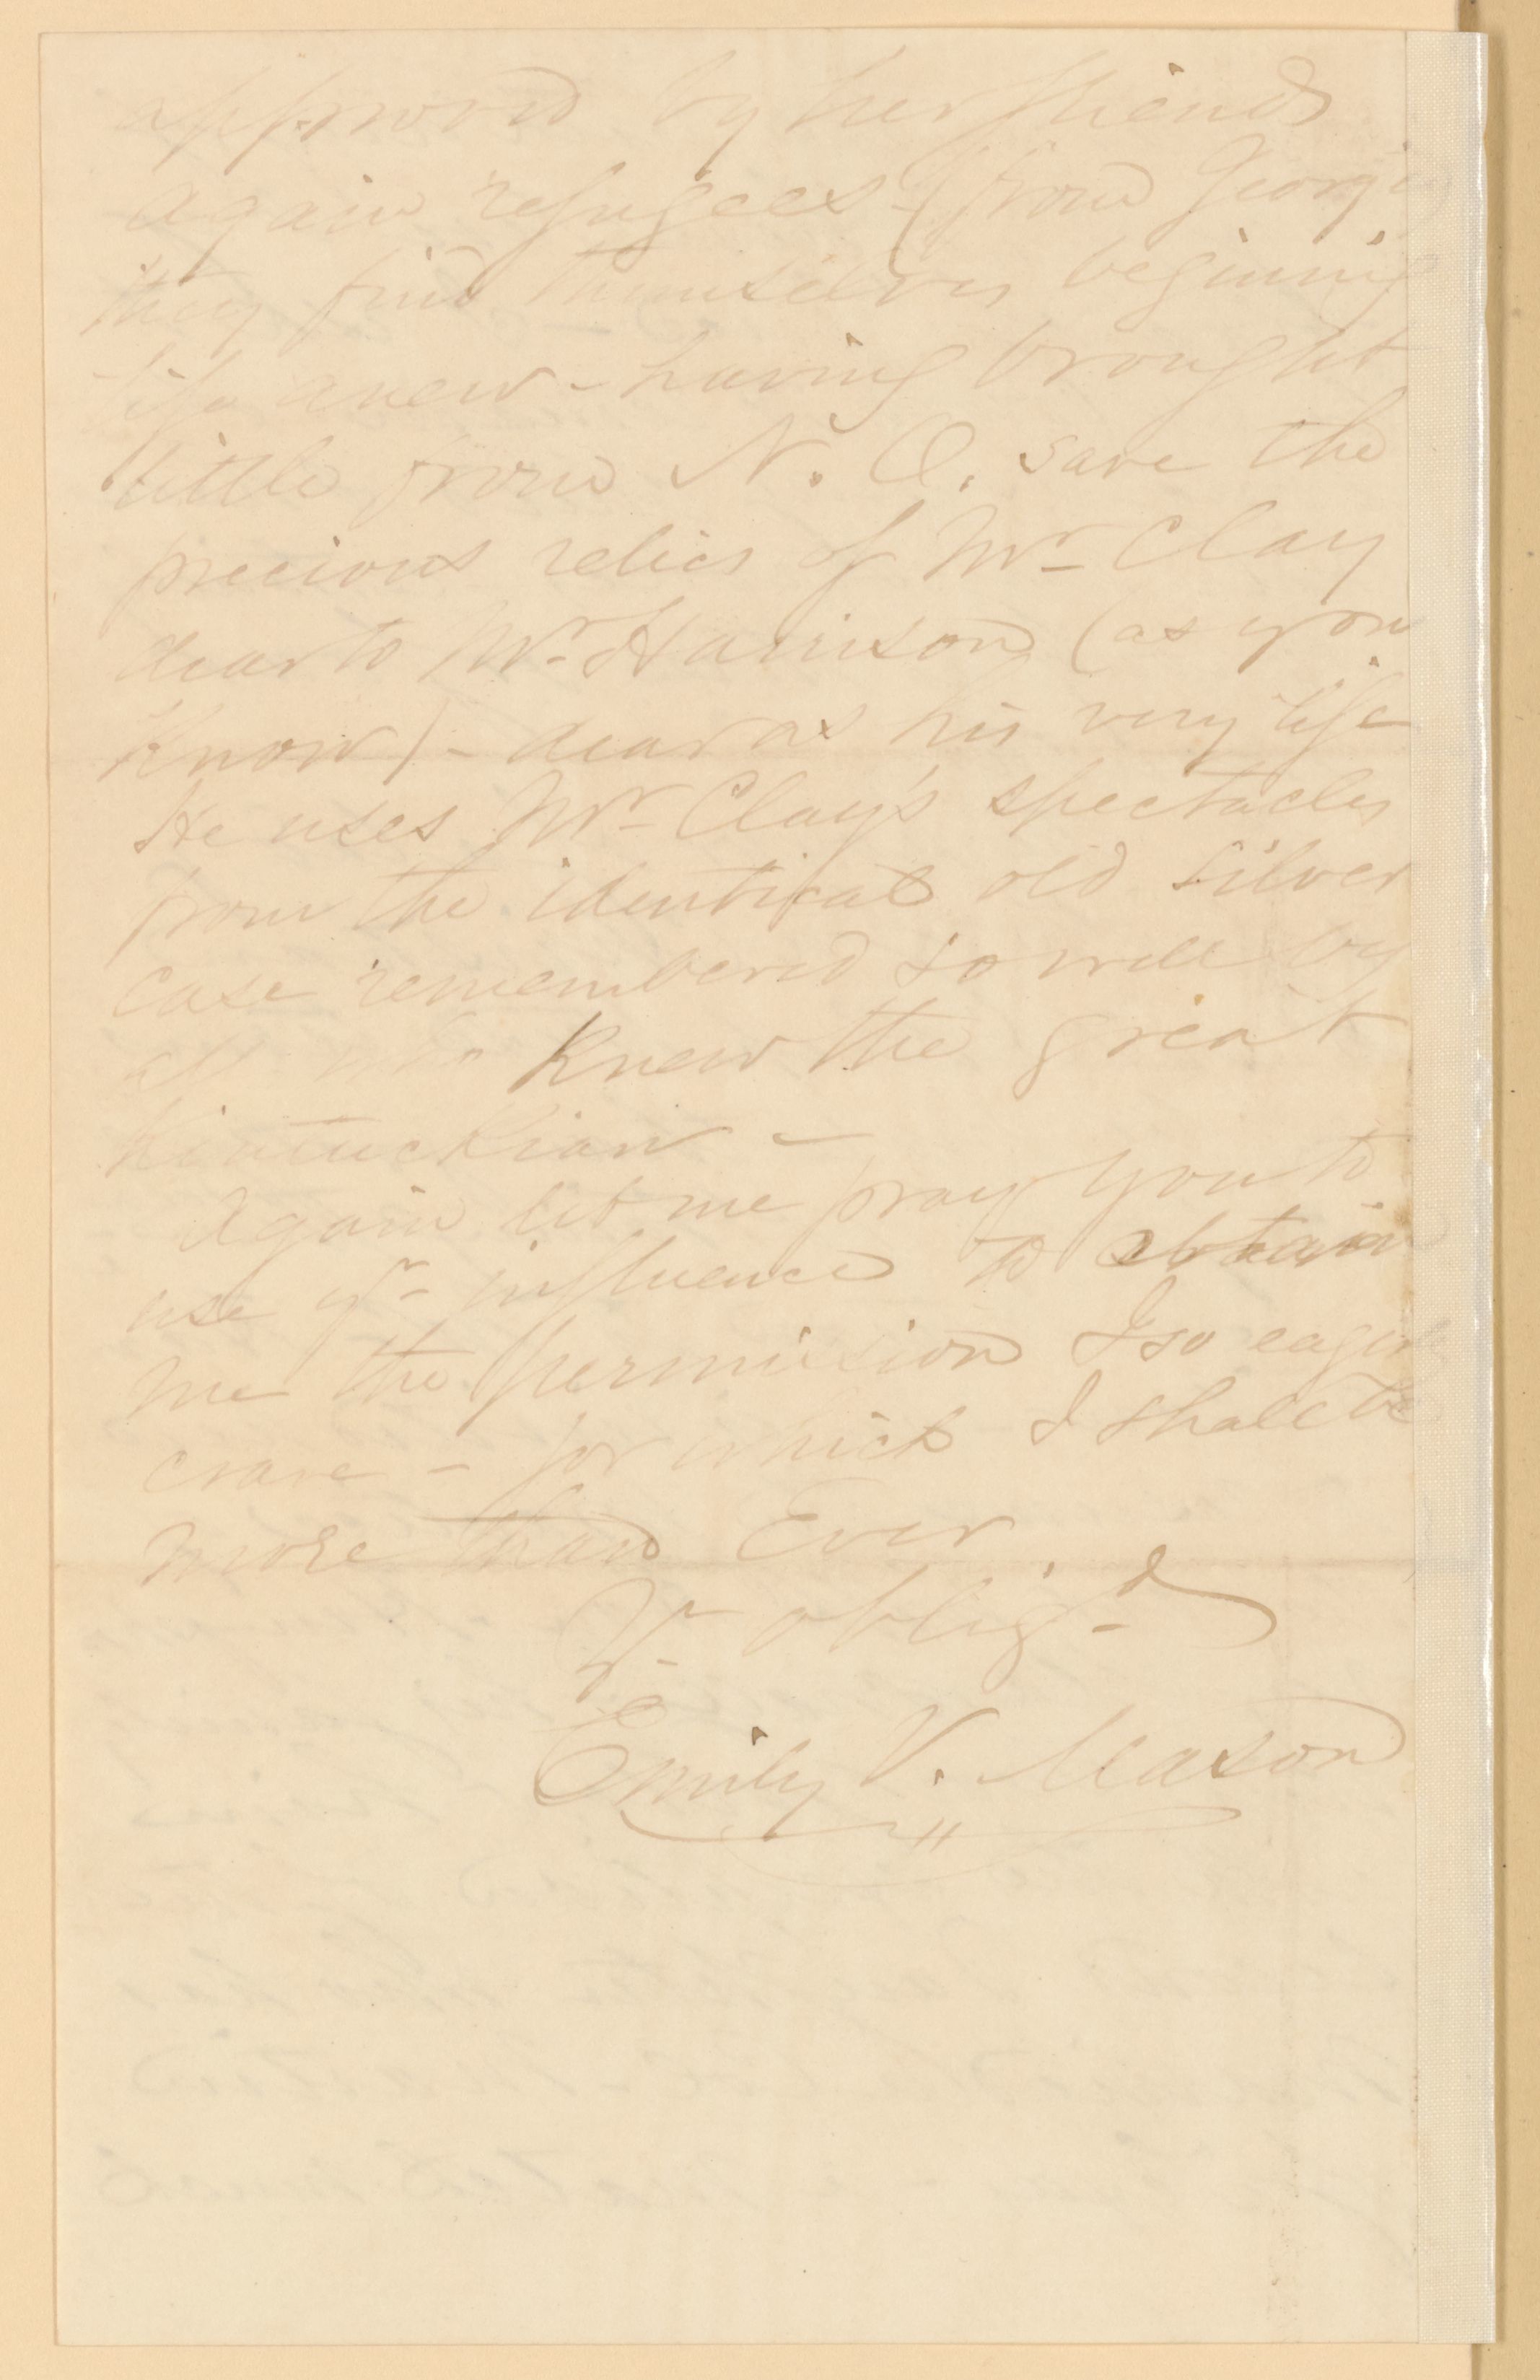 approved by her friends
again refugees (from Georgia
they find themselves beginning
life anew - having brought
little from N. O. save the
precious relics of Mr Clay
dear to Mr Harrison (as you
know) - dear as his very life
He uses Mr Clay's spectacles
from the identical old silver
case remembered so well by
all who knew the great
Kentuckian -
Again let me pray you to
use yr influence to obtain
me the permission I so eagerly
crave - for which I shall be
more than Ever
Yr oblig'd
Emily V. Mason